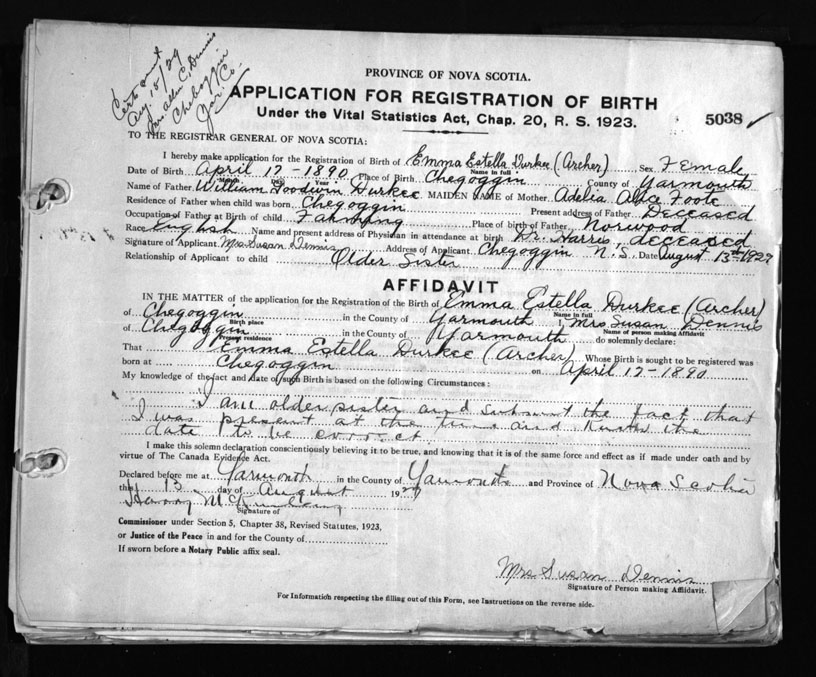 Cert sent
Aug. 15/29
Mrs Allen C. Dennis
Chegoggin
Yar. Co.
PROVINCE OF NOVA SCOTIA.
APPLICATION FOR REGISTRATION OF BIRTH
Under the Vital Statistics Act, Chap. 20, R. S. 1923.
5038
TO THE REGISTRAR GENERAL OF NOVA SCOTIA:
I hereby make application for the Registration of Birth of Emma Estella Durkee (Archer) Sex Female
Name in full
Date of Birth April 17-1890 Place of Birth Chegoggin County of Yarmouth
Month Day Year
Name of Father William Goodwin Durkee MAIDEN NAME of Mother Adelia Alice Foote
Residence of Father when child was born Chegoggin Present address of Father Deceased
Occupation of Father at Birth of child Farming Place of birth of Father Norwood
Race English Name and present address of Physician in attendance at birth Dr. Harris, deceased
Signature of Applicant Mrs Susan Dennis Address of Applicant Chegoggin N.S. Date August 13th 1929
Relationship of Applicant to child Older Sister
AFFIDAVIT
IN THE MATTER of the application for the Registration of the Birth of Emma Estella Durkee (Archer)
Name in full
of Chegoggin in the County of Yarmouth I, Mrs Susan Dennis
Birth place Name of person making Affidavit
of Chegoggin in the County of Yarmouth do solemnly declare:
Present residence
That Emma Estella Durkee (Archer) Whose Birth is sought to be registered was
born at Chegoggin on April 17-1890
My knowledge of the fact and date of such Birth is based on the following Circumstances:
I am older sister and submit the fact that
I was present at the time and know the
date to be correct
I make this solemn declaration conscientiously believing it to be true, and knowing that it is of the same force and effect as if made under oath and by
virtue of The Canada Evidence Act.
Declared before me at Yarmouth in the County of Yarmouth and Province of Nova Scotia
this 13 day of August 1929
Signature of
Commissioner under Section 5, Chapter 38, Revised Statutes, 1923,
or Justice of the Peace in and for the County of
If sworn before a Notary Public affix seal.
Mrs Susan Dennis
Signature of Person making Affidavit.
For Information respecting the filling out of this Form, see Instructions on the reverse side.